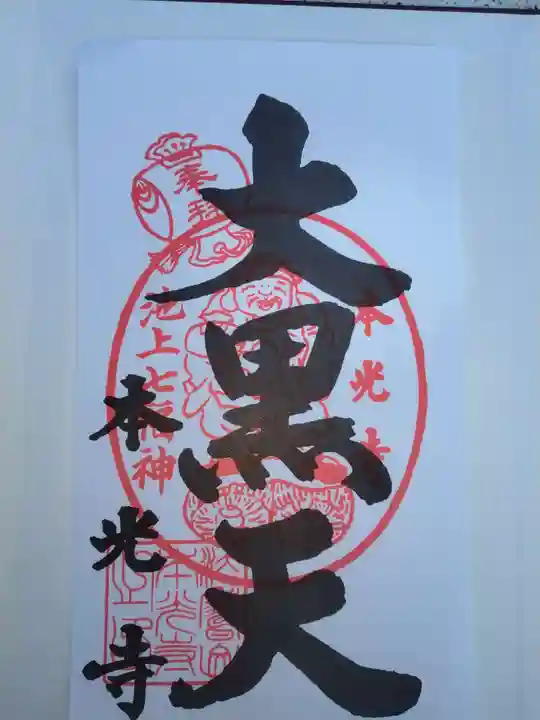 奉拝
大黒天
本光寺
池上七福神
本光寺